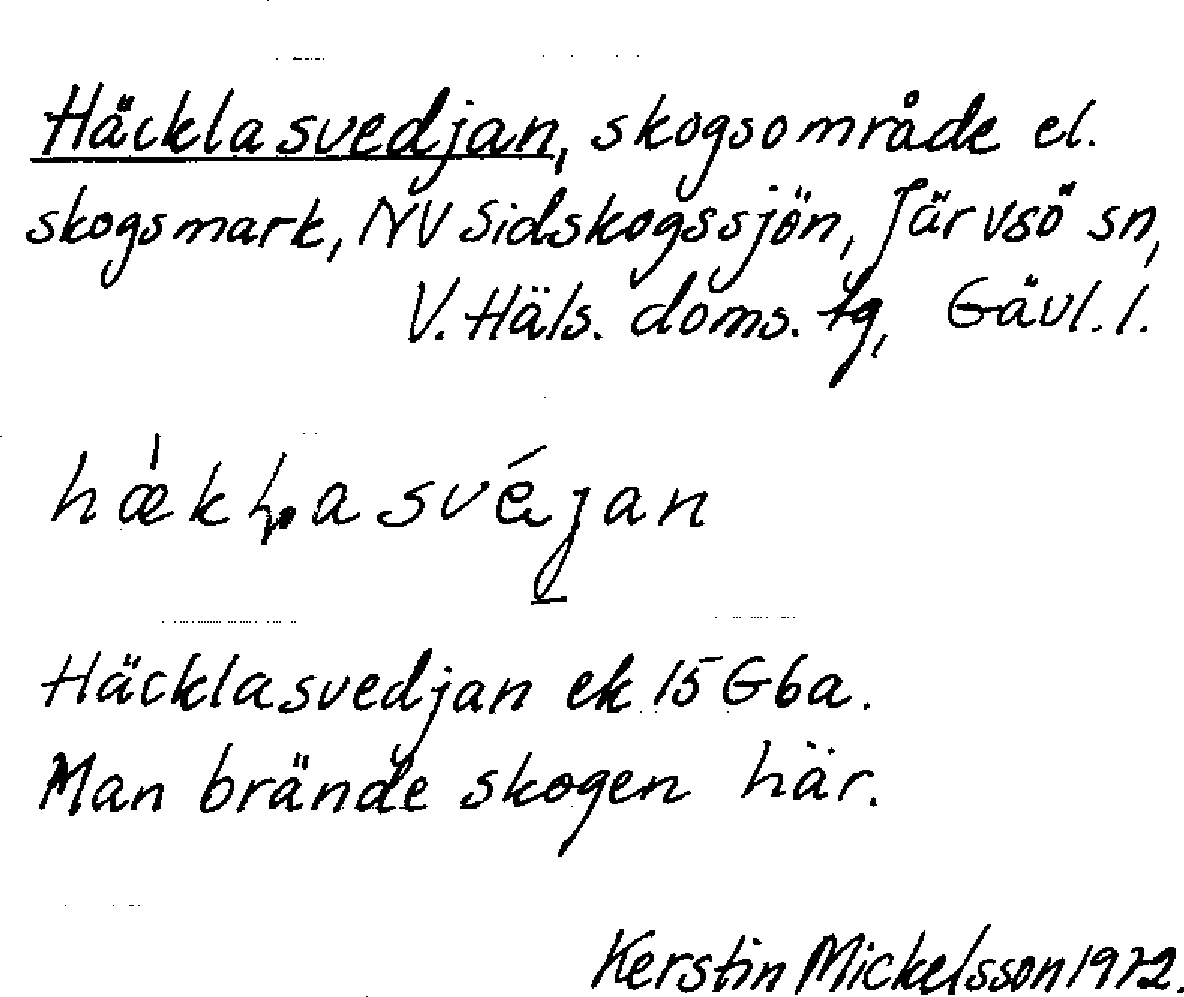 Häcklasvedjan, skogsområde el.
skogsmark, NV Sidskogssjön, Järvsö sn,
V. Häls. doms. tg, Gävl. l.
Häcklasvedjan ek 15 G6a.
Man brände skogen här.
Kerstin Mickelsson 1972.